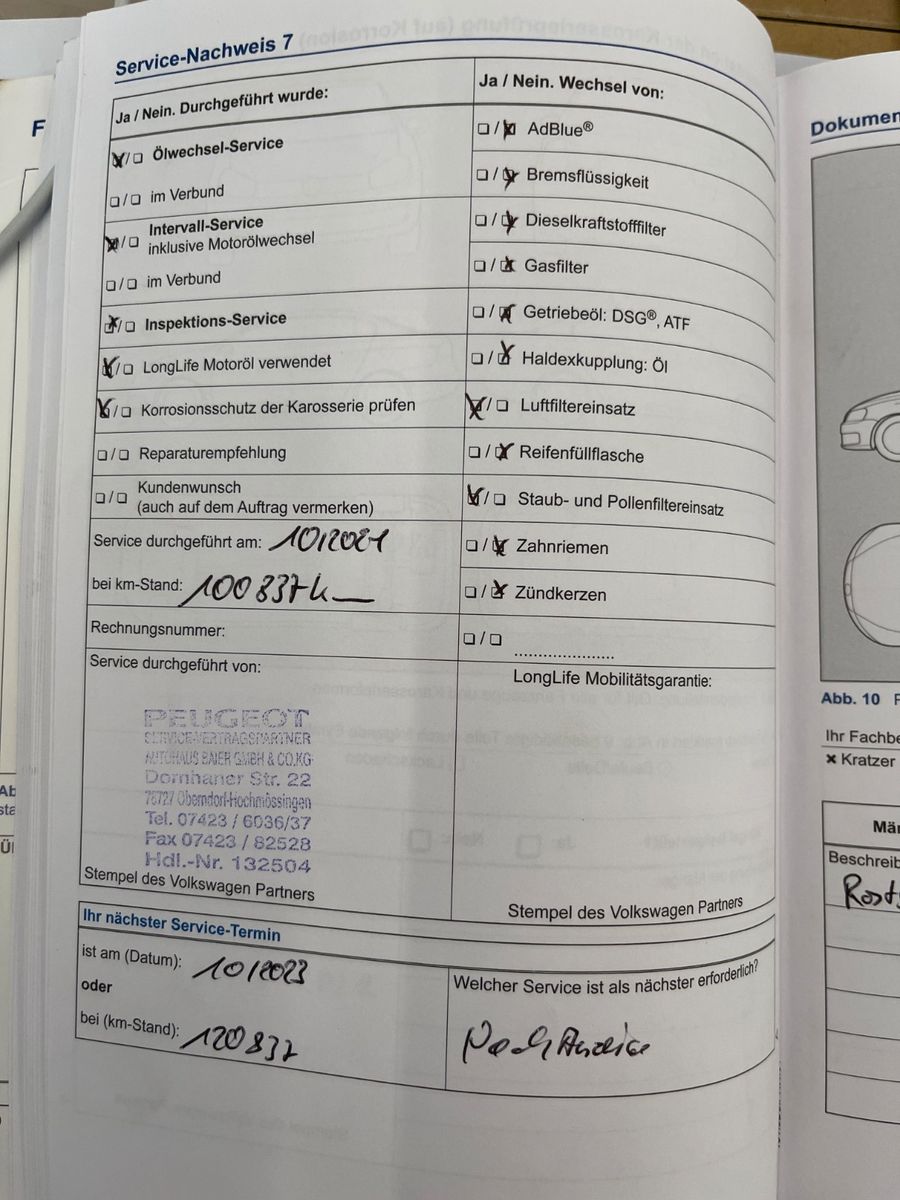 Service-Nachweis 7
Ja / Nein. Durchgeführt wurde:
Ölwechsel-Service
im Verbund
Intervall-Service
inklusive Motorölwechsel
im Verbund
Inspektions-Service
LongLife Motoröl verwendet
Korrosionsschutz der Karosserie prüfen
Reparaturempfehlung
Kundenwunsch
(auch auf dem Auftrag vermerken)
Service durchgeführt am: 10/2021
bei km-Stand: 100837k
Rechnungsnummer:
Service durchgeführt von:
PEUGEOT
SERVICE-VERTRAGSPARTNER
AUTOHAUS BAIER GMBH & CO.KG
Dornhaner Str. 22
78727 Oberndorf-Hochmössingen
Tel. 07423 / 6036/37
Fax 07423 / 82528
Hdl.-Nr. 132504
Stempel des Volkswagen Partners
Ja / Nein. Wechsel von:
AdBlue®
Bremsflüssigkeit
Dieselkraftstofffilter
Gasfilter
Getriebeöl: DSG®, ATF
Haldexkupplung: Öl
Luftfiltereinsatz
Reifenfüllflasche
Staub- und Pollenfiltereinsatz
Zahnriemen
Zündkerzen
LongLife Mobilitätsgarantie:
Stempel des Volkswagen Partners
Ihr nächster Service-Termin
ist am (Datum): 10/2023
oder
bei (km-Stand): 120837
Welcher Service ist als nächster erforderlich?
Nach
Dokumen
Abb. 10
Ihr Fachbe
× Kratzer
Män
Beschreib
Rost